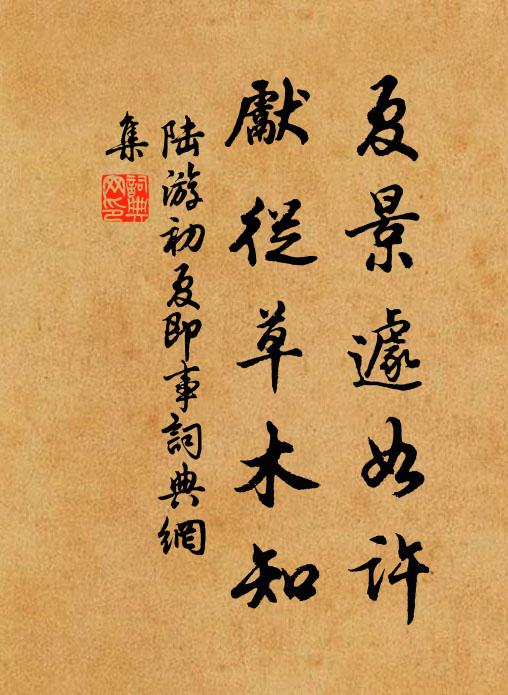 夏景遽如許
獻從草木知
陸游初夏即事詞典網
集
詞典
网印